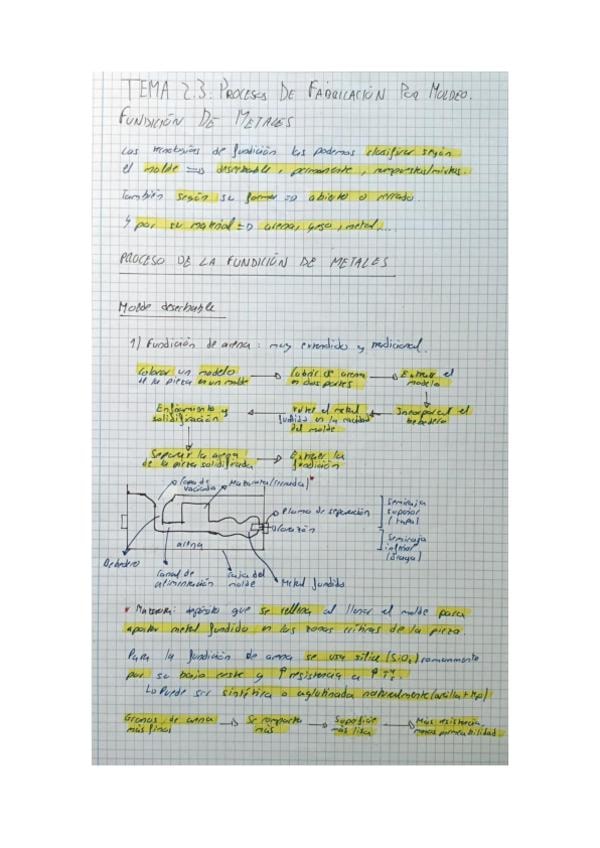 TEMA 2.3. PROCESOS DE FABRICACIÓN POR MOLDEO.
FUNDICIÓN DE METALES
Las tecnologías de fundición las podemos clasificar según
el molde => desechable, permanente, compuestos/mixtos.
También según su forma => abierto o cerrado.
Y por su material => arena, yeso, metal,...
PROCESO DE LA FUNDICIÓN DE METALES
Molde desechable
1) Fundición de arena: muy extendido y tradicional.
Colocar un modelo → Cubrir de arena → Extraer el
de la pieza en un molde en dos partes modelo
Enfriamiento y ← Verter el metal ← Incorporar el
solidificación fundido en la cavidad bebedero
del molde
Separar la arena → Extraer la
de la pieza solidificada fundición
Copa de
vaciado
Mazarota (cerrada)*
Plano de separación
Corazón
Semicaja
superior
(tapa)
Semicaja
inferior
(Draga)
arena
Bebedero
Canal de
alimentación
Caja del
molde
Metal fundido
* Mazarota: depósito que se rellena al llenar el molde para
aportar metal fundido en las zonas críticas de la pieza.
Para la fundición de arena se usa sílice (SiO₂) comunmente
por su bajo coste y ↑ resistencia a ↑ Tª.
Lo Puede ser sintética o aglutinada naturalmente (arcilla +
Granos de arena → Se compacta → Superficie → Más resistencia
más finos más más lisa menos permeabilidad.